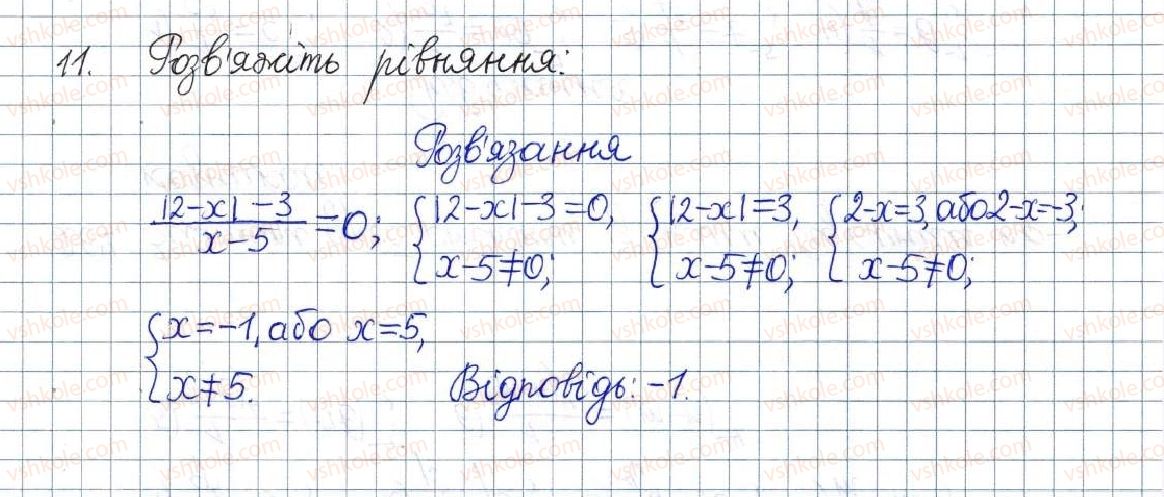 11. Розв'яжіть рівняння:
Розв'язання
|2-x|-3 / x-5 = 0; { |2-x|-3=0, x-5≠0; { |2-x|=3, x-5≠0; { 2-x=3, або 2-x=-3, x-5≠0;
{ x=-1, або x=5, x≠5.
Відповідь: -1.
vshkole.com